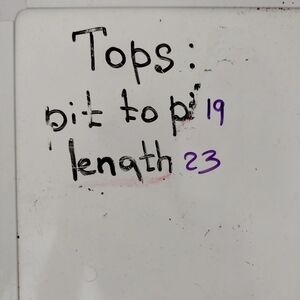 Tops:
pit to pi 19
length 23